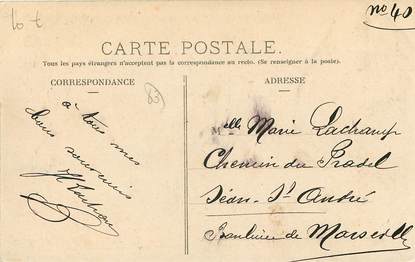 no 40
CARTE POSTALE.
Tous les pays étrangers n'acceptent pas la correspondance au recto. (Se renseigner à la poste).
CORRESPONDANCE
ADRESSE
à tous mes
bons souvenirs
Melle Marie Lachamp
Chemin du Pradel
Jean-St André
Banlieue de Marseille